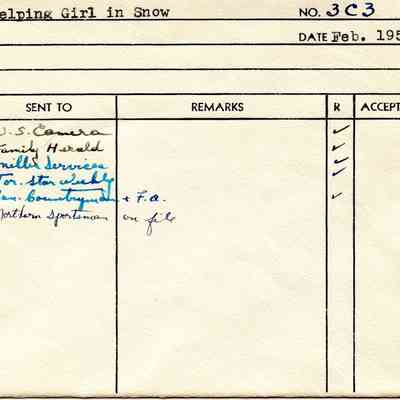 elping Girl in Snow NO. 3C3
DATE Feb. 195
SENT TO REMARKS R ACCEPT
U.S. Camera ✓
Family Herald ✓
Miller Services ✓
Tor. Star Weekly ✓
Can. Countryman + F.a. ✓
Northern Sportsman on file